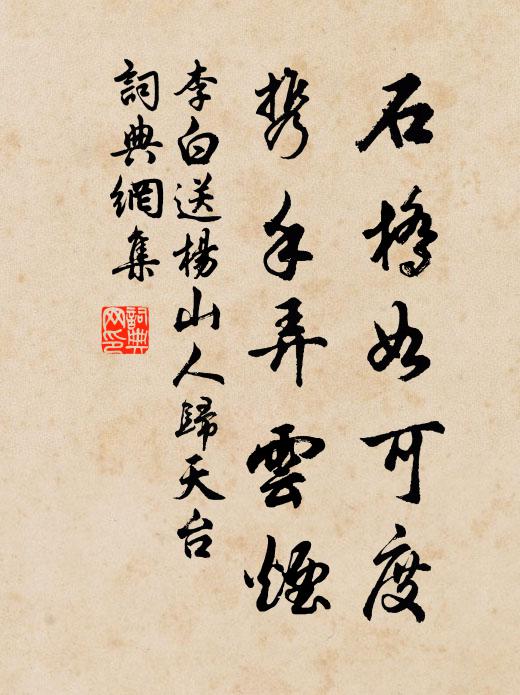 石橋如可度
携手弄雲煙
李白送楊山人歸天台
詞典網集
詞典網印